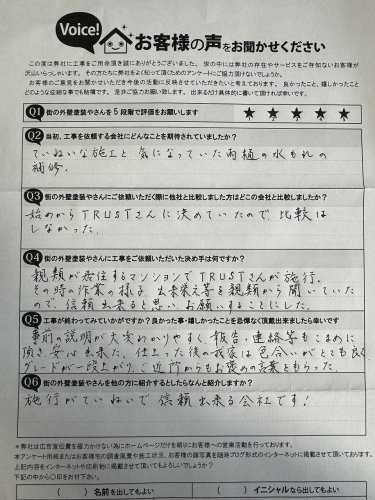 Voice!
お客様の声をお聞かせください
この度は弊社に工事をご用命頂き誠にありがとうございました。世の中には弊社の存在やサービスをご存知ないお客様が
沢山いらっしゃいます。その方たちに弊社をよく知って頂くためのアンケートにご協力頂けないでしょうか。
お客様のご意見をお聞かせいただき今後の活動に反映させていただきたいと考えております。良かったこと、嬉しかったこと
どのような些細な事でも結構です。是非ご協力お願い致します。出来るだけ具体的に書いて頂ければ幸いです。
Q1 街の外壁塗装やさんを5段階で評価をお願いします ★ ★ ★ ★ ★
Q2 当初、工事を依頼する会社にどんなことを期待されていましたか?
ていねいな施工と気になっていた雨樋の水もれの
補修.
Q3 街の外壁塗装やさんにご依頼いただく際に他社と比較しました方はどこの会社と比較しましたか?
始めからTRUSTさんに決めていたので比較は
しなかった.
Q4 街の外壁塗装やさんに工事をご依頼いただいた決め手は何ですか?
親類が居住するマンションでTRUSTさんが施行.
その時の作業の様子、出来栄え等を親類から聞いていた
ので、信頼出来ると思いお願いすることにした.
Q5 工事が終わってみていかがですか?良かった事・嬉しかったことを忌憚なく頂戴出来ましたら幸いです
事前の説明が大変わかりやすく、報告・連絡等もこまめに
頂き、安心出来た。仕上った後の我家は色合いがとても良く
グレードが一段上がり、ご近所からもお褒めの言葉をもらった.
Q6 街の外壁塗装やさんを他の方に紹介するとしたらなんと紹介しますか?
施行がていねいで信頼出来る会社です!
*弊社は広告宣伝費を極力かけない為にホームページだけを頼りにお客様への営業活動を行っております。
本アンケート用紙またはお客様宅の調査風景や施工状況、お客様の顔写真を随時ブログ形式のインターネットに掲載させて頂いております。
上記内容をインターネットや印刷物に掲載させて頂いてもよろしいでしょうか?
下記の中から〇印をお付け下さい。
( )名前を出してもよい ( )イニシャルなら出してもよい